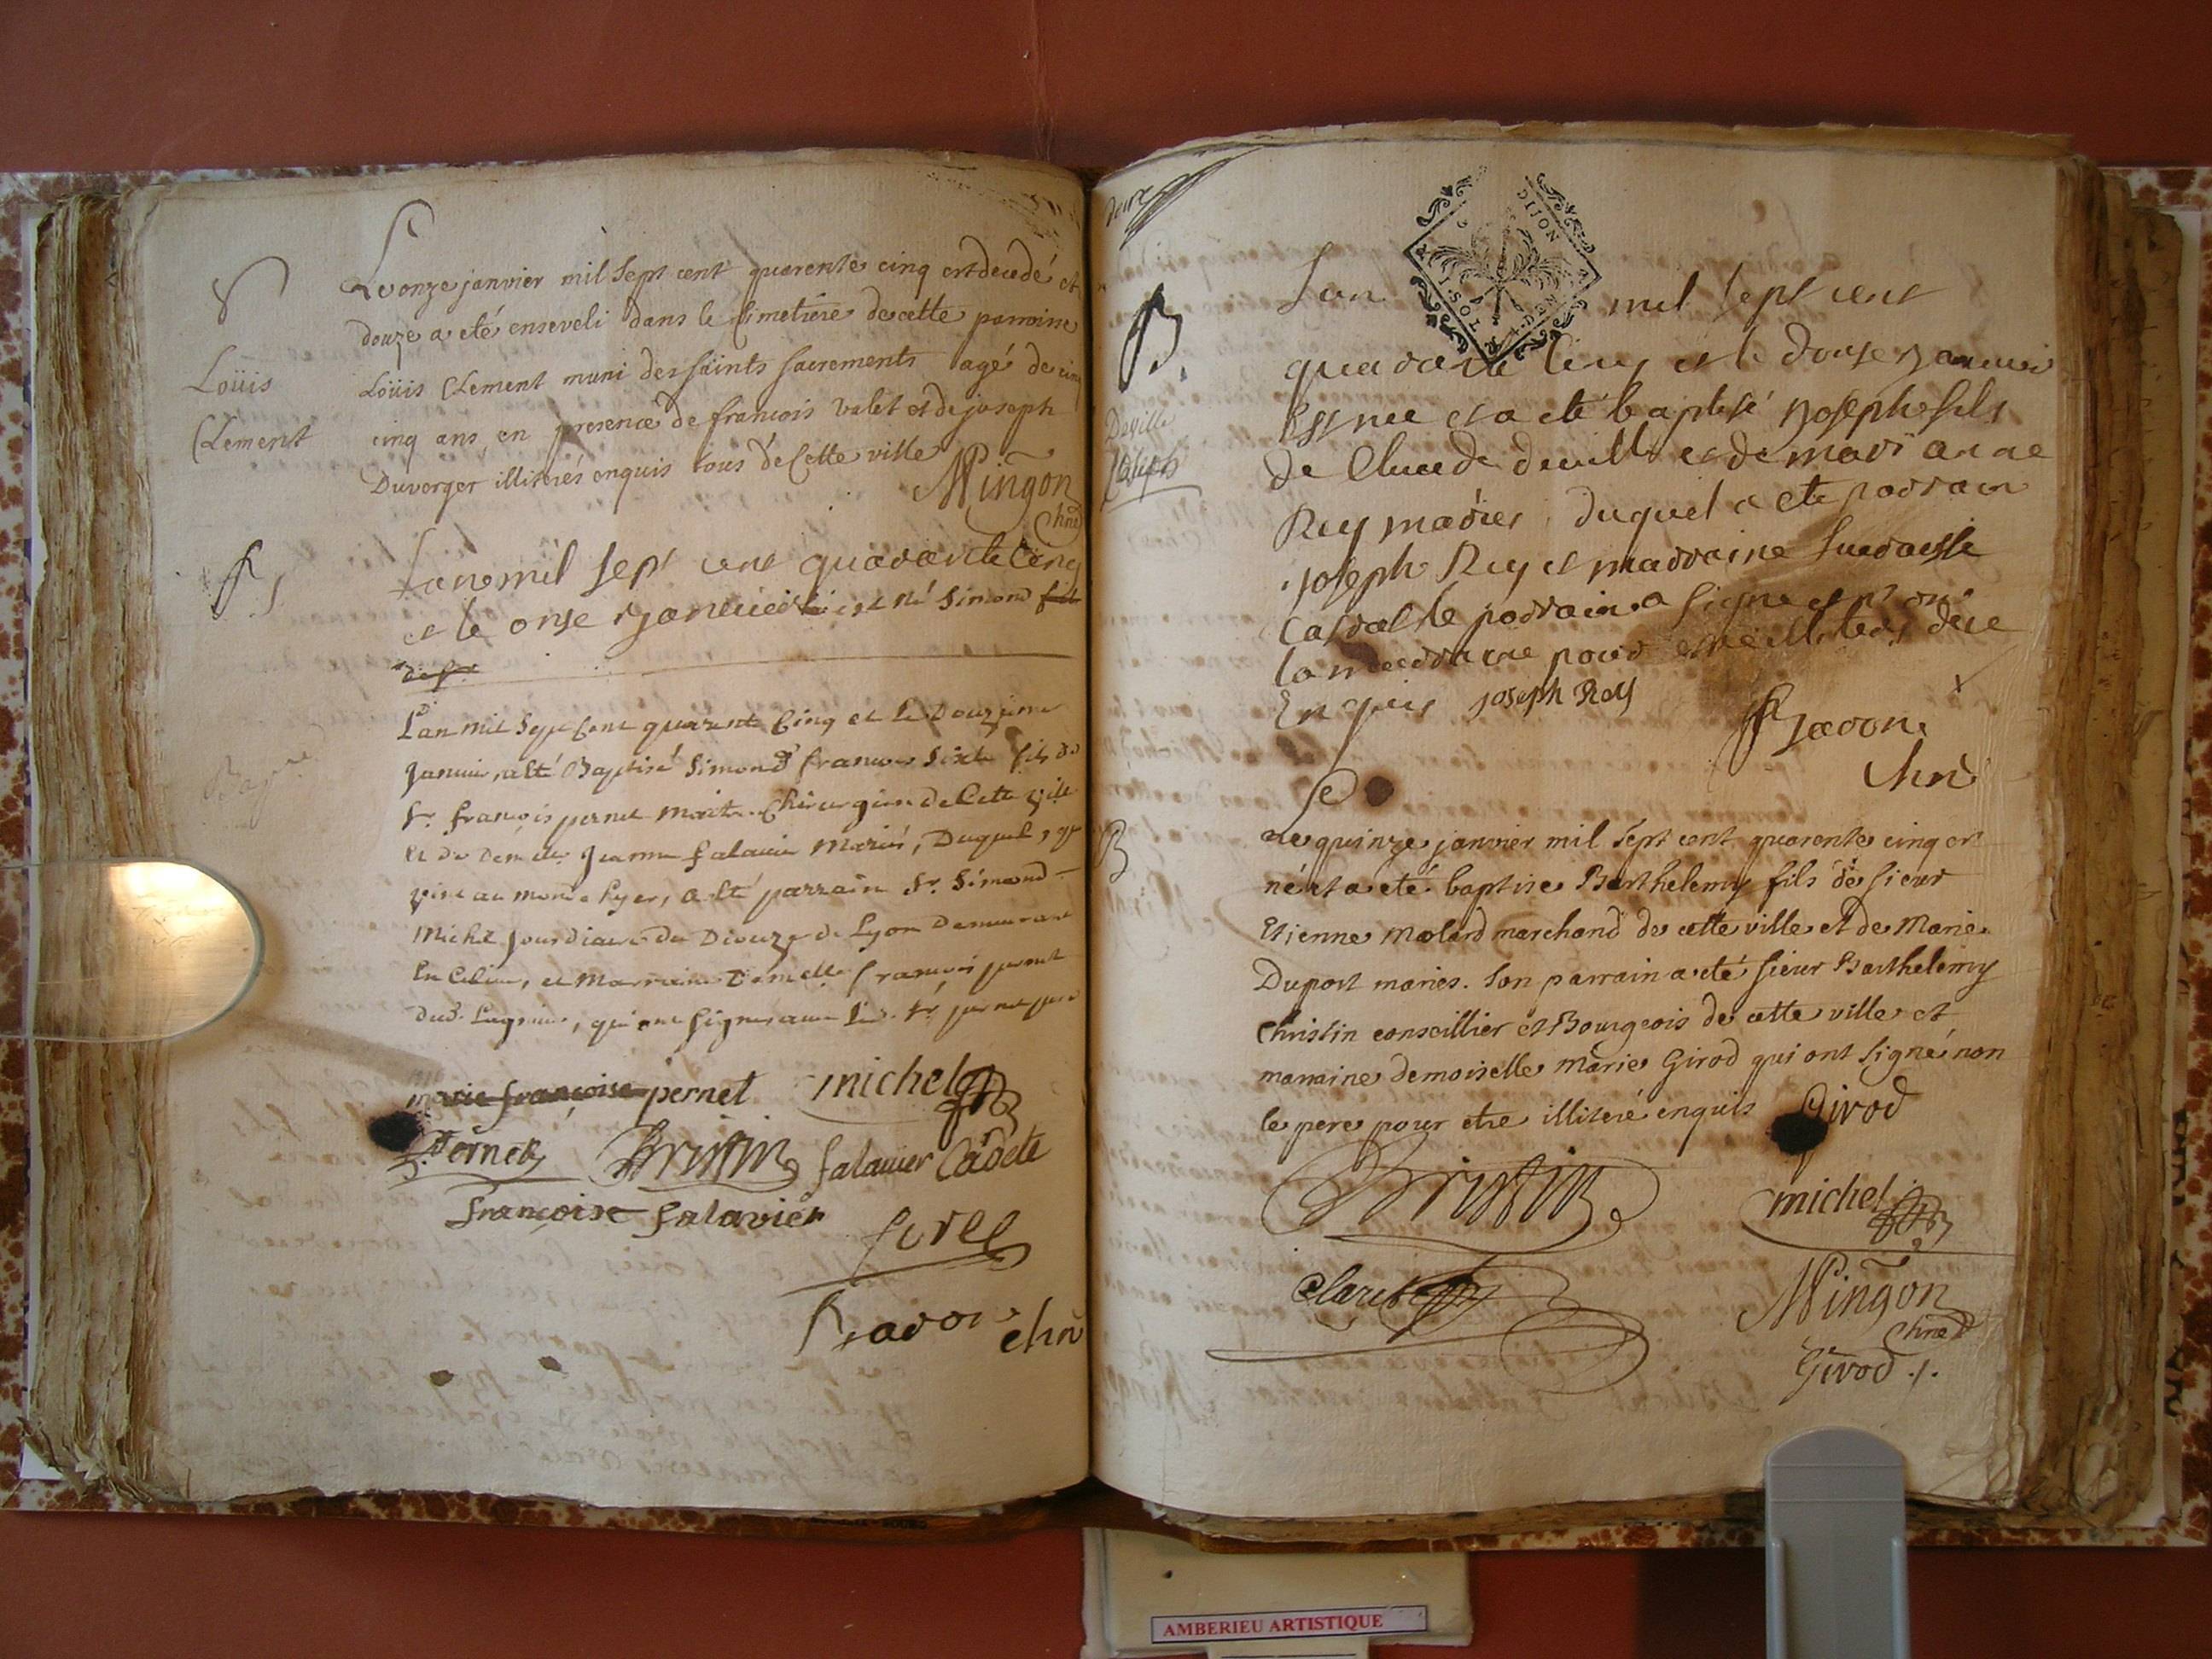 Le onze janvier mil sept cent quarente cinq est decedé et
douze a eté enseveli dans le Cimetiere de cette parroisse
Loüis
Loüis Clement muni des saints sacrements agé de cinq
Clement
cinq ans en presence de francois valet et de joseph
Duverger illiterés enquis tous de Cette ville
Mingon
Chne
Lan mil sept cent quarante Cinq
et le onse janvier est né Simond fils
de sr
Lan mil Sept Cent quarente Cinq et le Douzieme
Janvier, a été Baptisé Simond francois Sixte fils de
Sr. françois pernet Maitre Chirurgien de Cette ville
et de Demlle Jeanne falavier Mariés, Duquel, qui
vint au monde hyer, a été parrain Sr. Simond
Michel
demurant
et Marraine Demelle francoise pernet
qui ont signés avec pernet pere
marie françoise pernet michel
Pernet Brissin falavier Cadete
françoise falavier
chne
DIJON
Lan mil sept cent
B.
quarante cinq et le douse janvier
Est nee et a eté baptisé joseph fils
Deville
Joseph
de Claude deville et de mari anne
Rey mariés duquel a ete parrain
joseph Rey et marraine
le parrain a signe et non
la marraine pour estre illiteree de ce
Enquis joseph Rey
chne
B
Le quinze janvier mil sept cent quarente cinq est
né et a eté baptise Barthelemy fils de sieur
Etienne Molard marchand de cette ville et de Marie
Duport mariés. Son parrain a eté sieur Barthelemy
Christin conseillier et Bourgeois de cette ville et
marraine demoiselle Marie Girod qui ont signé, non
le pere pour etre illiteré enquis Girod
Brissin michel
Claret Mingon
Chne
Girod
AMBERIEU ARTISTIQUE